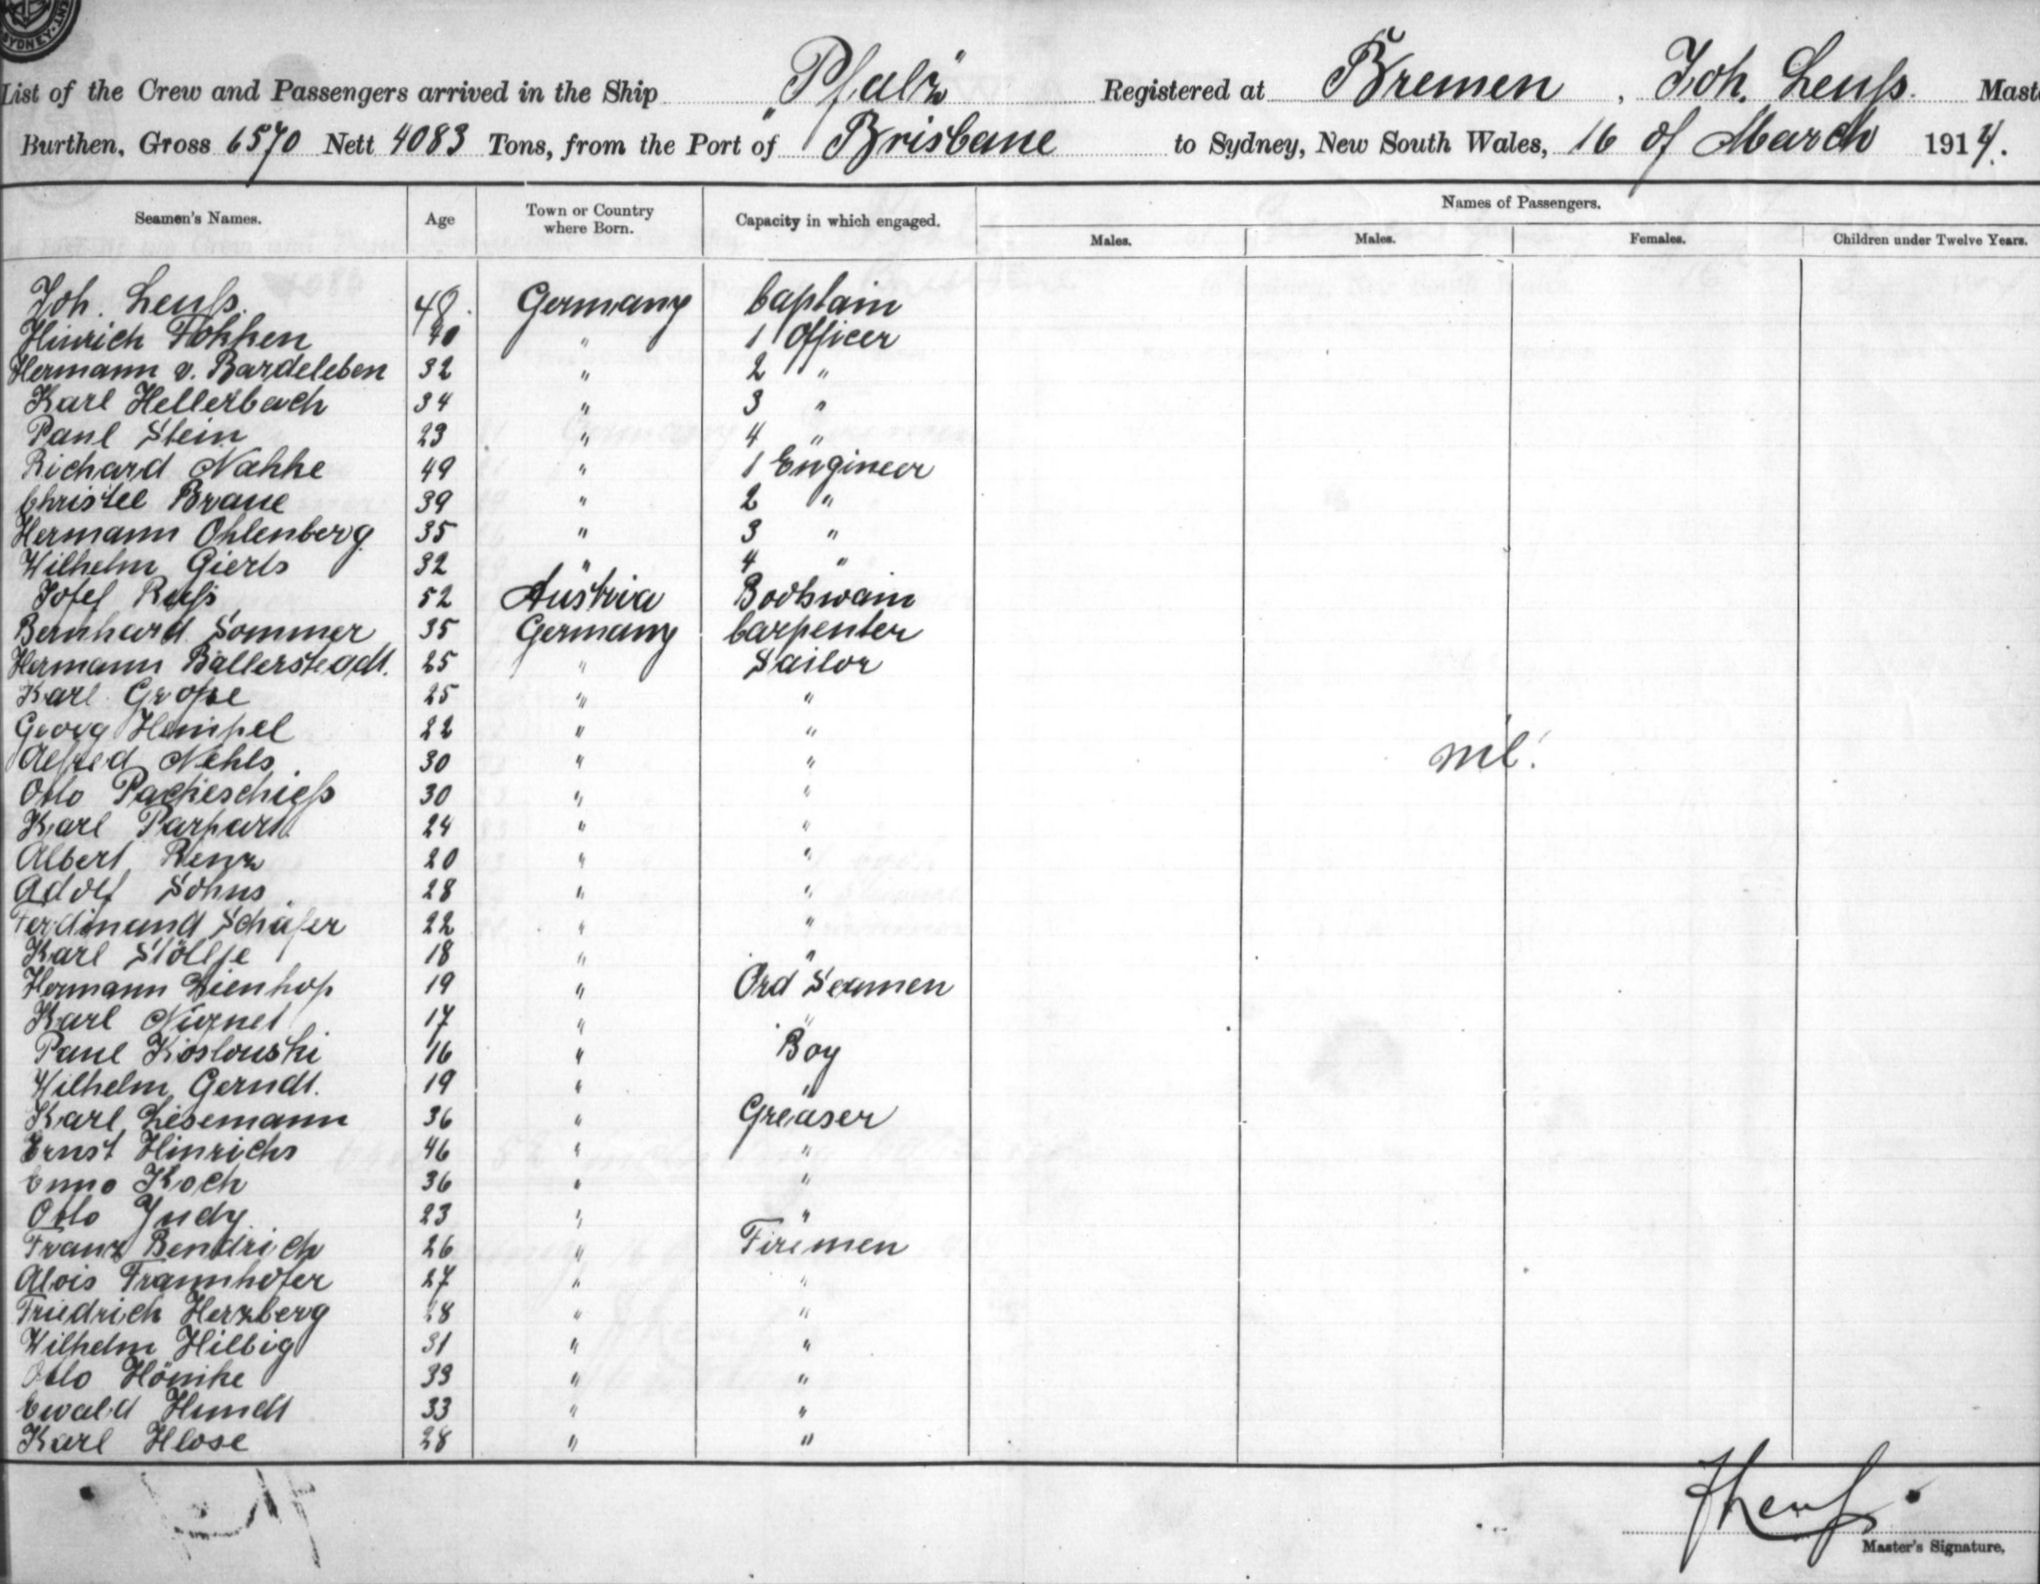 SYDNEY
List of the Crew and Passengers arrived in the Ship "Pfalz" Registered at Bremen, Joh. Leuſs. Mast
Burthen, Gross 6570 Nett 4083 Tons, from the Port of Brisbane to Sydney, New South Wales, 16 of March 1914.
Seamen's Names. Age Town or Country where Born. Capacity in which engaged. Names of Passengers.
Males. Males. Females. Children under Twelve Years.
Joh. Leuſs. 48. Germany Captain
Hinrich Fokken 40 " 1 Officer
Hermann v. Bardeleben 32 " 2 "
Karl Hellerbach 34 " 3 "
Paul Stein 23 " 4 "
Richard Nahke 49 " 1 Engineer
Christel Braue 39 " 2 "
Hermann Ohlenberg 35 " 3 "
Wilhelm Gierts 32 " 4 "
Josef Reuſs 52 Austria Bootswain
Bernhard Sommer 35 Germany Carpenter
Hermann Ballerstedt. 25 " Sailor
Karl Groſse 25 " "
Georg Hempel 22 " "
Alfred Nehls 30 " "
nil.
Otto 30 " "
Karl Parpart 24 " "
Albert Renz 20 " "
Adolf Sohns 28 " "
Ferdinand Schäfer 22 " "
Karl Stöltje 18 " "
Hermann Dienhop 19 " Ord Seamen
Karl 17 " "
Paul Koslowski 16 " Boy
Wilhelm Gerndt. 19 " "
Karl Lesemann 36 " Greaser
Ernst Hinrichs 46 " "
Enno Koch 36 " "
Otto Judy 23 " "
Franz Bendrich 26 " Firemen
Alois Fraunhofer 27 " "
Friedrich Herzberg 28 " "
Wilhelm Hilbig 31 " "
Otto Hönike 33 " "
Ewald Hundt 33 " "
Karl Klose 28 " "
JLeuſs
Master's Signature.